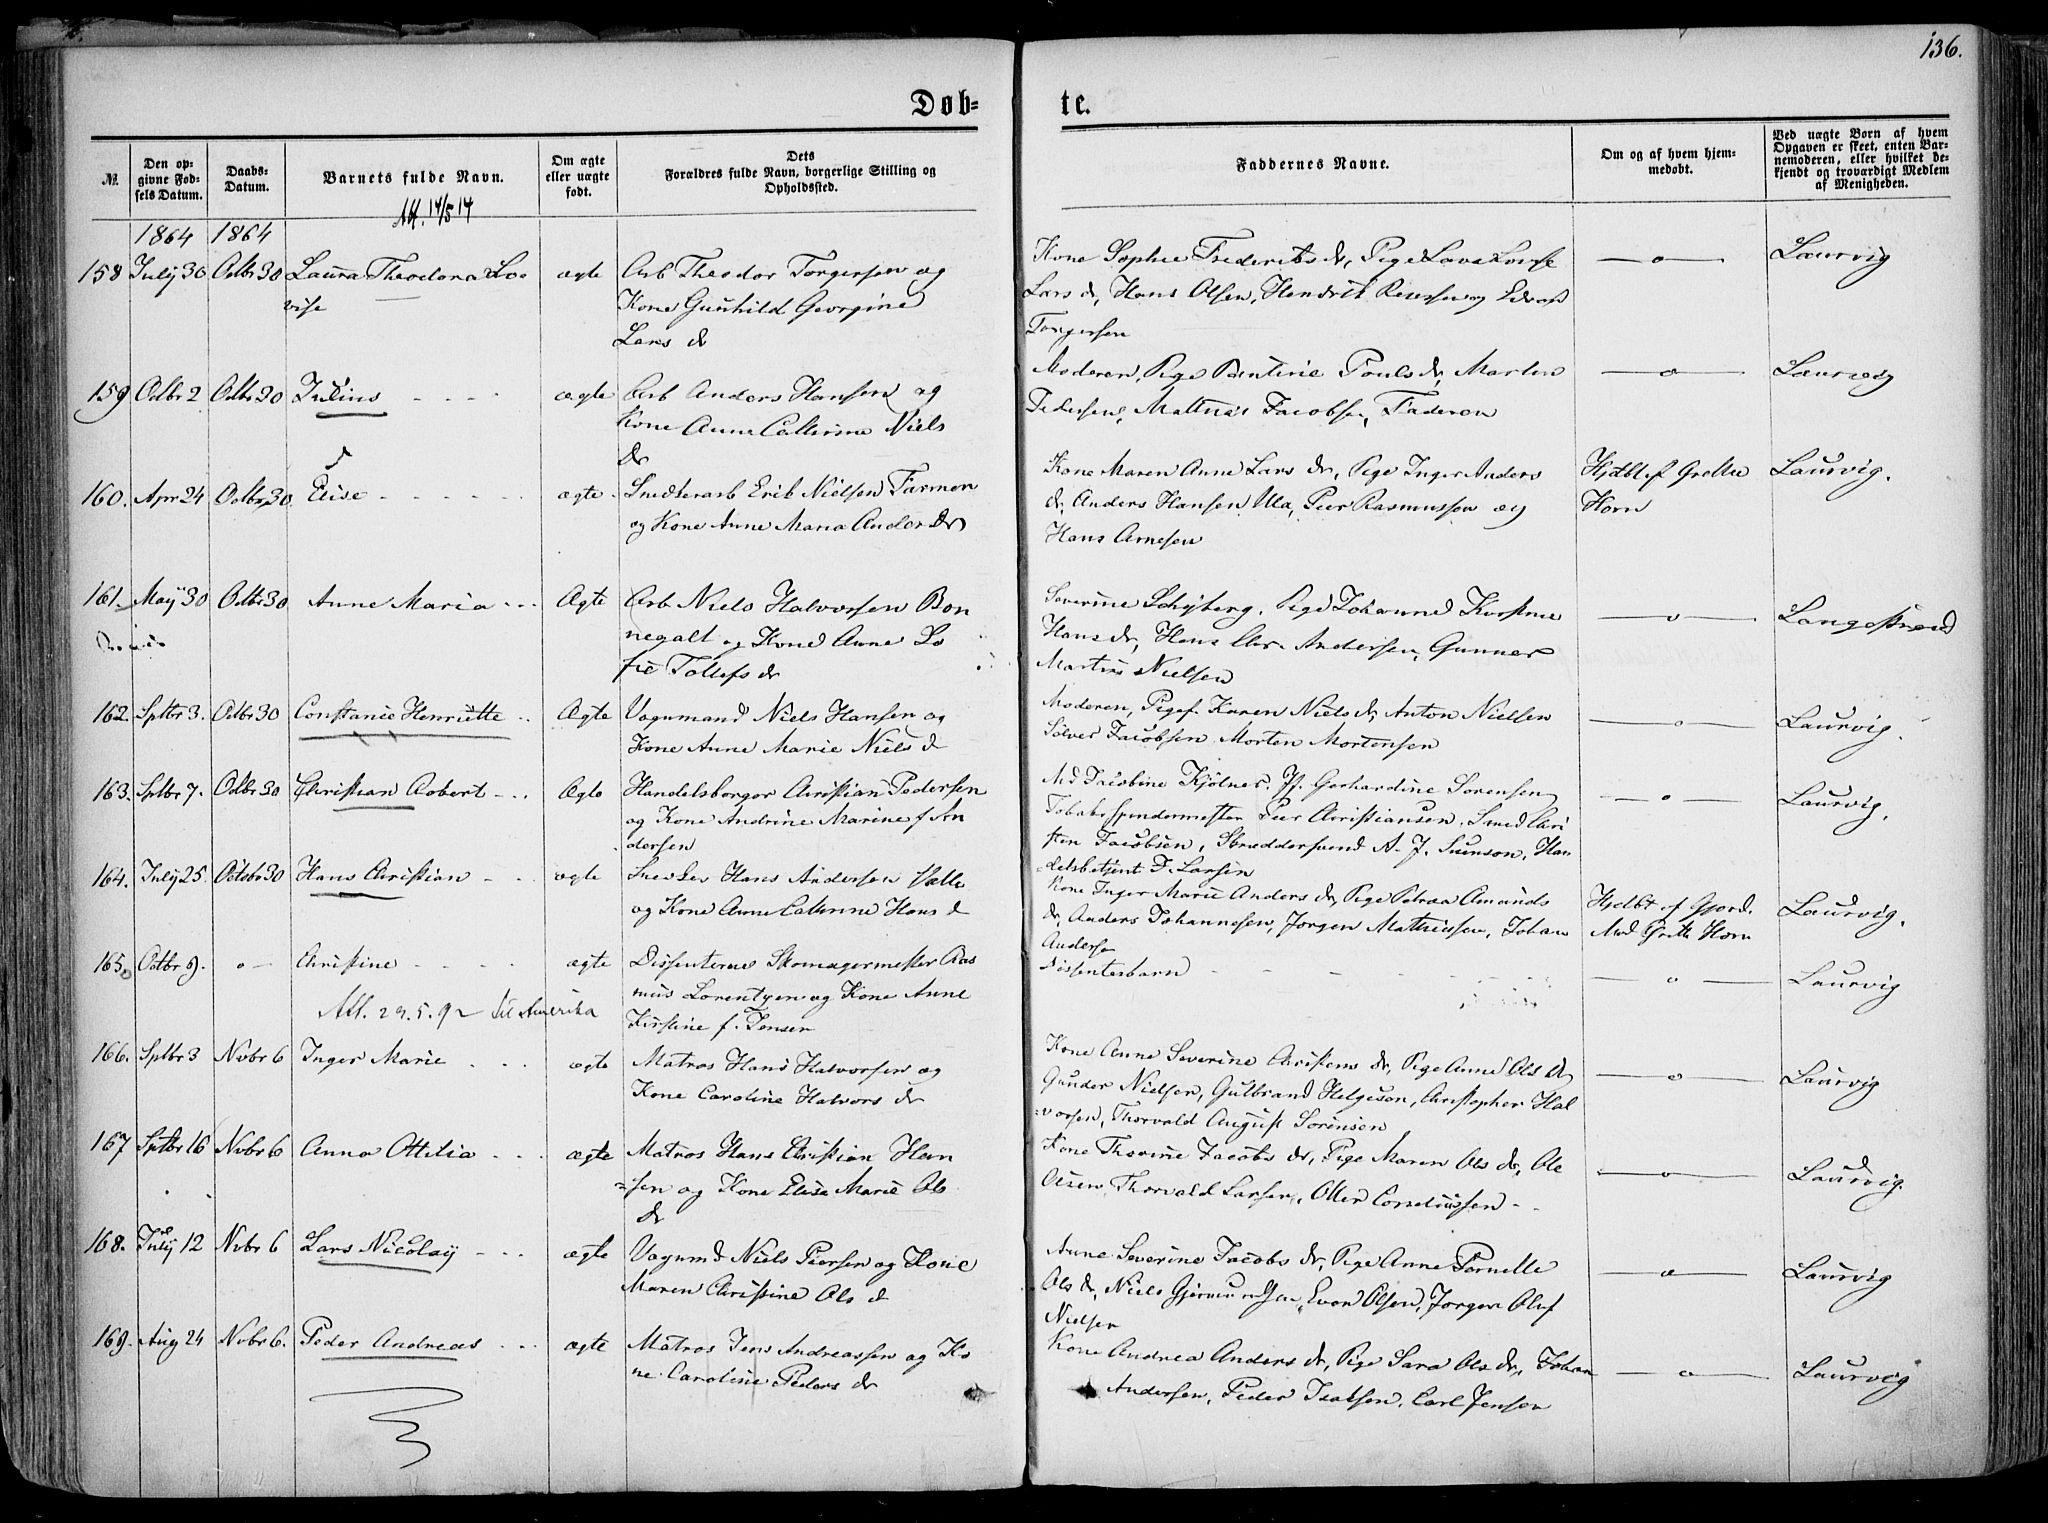 136.
Døb=
te.
№.
Den op=
givne Fød=
sels Datum.
Daabs=
Datum.
Barnets fulde Navn.
Om ægte
eller uægte
født.
Dets
Forældres fulde Navn, borgerlige Stilling og
Opholdssted.
Faddernes Navne.
Om og af hvem hjem=
medøbt.
Ved uægte Børn af hvem
Opgaven er skeet, enten Bar=
nemoderen, eller hvilket be=
kjendt og troværdigt Medlem
af Menigheden.
Att. 14/5 14
1864 1864
158 July 30 Octbr 30 Laura Theodora Lo
vise
ægte
Arb Theodor Torgersen og
Kone Gunhild Georgine
Lars d
Kone Sophie Frederiks dr, Pige Lava Lovise
Lars dr, Hans Olsen, Hendrik og
Torgersen
—o— Laurvig
159 Octbr 2 Octbr 30 Julius
ægte
Arb Anders Hansen og
Kone Anne Cathrine Niels
dr
Moderen, Pige Bentine Pouls dr, Marten
Pedersen, Mathias Jacobsen, Faderen
—o— Laurvig
160. Apr 24 Octbr 30. Elise
ægte
Snedkerarb Erik Nielsen Farmen
og Kone Anne Maria Anders dr
Kone Maren Anne Lars dr, Pige Inger Anders
dr, Anders Hansen Ula, Peer Rasmussen og
Hans Arnesen
Hjdbt af Grethe
Horn
Laurvig.
161. May 30 Octbr 30 Anne Maria
Ægte
Arb Niels Halvorsen Bon
negalt og Kone Anne So
fie Tollefs dr
Severine Schyberg, Pige Johanne Kirstine
Hans dr, Hans Chr. Andersen, Gunner
Martin Nielsen
—o— Langestrand
162. Sptbr 3. Octbr 30 Constanse Henriette
Ægte
Vognmand Niels Hansen og
Kone Anne Marie Niels d
Moderen, Pige Karen Niels dr, Anton Nielsen
Sölver Jacobsen Morten Mortensen
—o— Laurvig.
163. Sptbr 7. Octbr 30 Christian Robert
Ægte
Handelsborger Christian Pedersen
og Kone Andrine Marine f An
dersen
Md Jacobine Kjölner, Jf. Gerhardine Sorensen
Tobaksspindermester Peer Christiansen, Smed Chri
sten Jacobsen, Skreddersvend A. J. Svenson, Han
delsbetjent F. Larsen
—o— Laurvig.
164. July 25. Octobr 30 Hans Christian
ægte
Hans Andersen Valle
og Kone Anne Cathrine Hans d
Kone Inger Marie Anders dr, Pige Petrea Amunds
dr, Anders Johannesen, Jorgen Mathiessen, Johan
Anderse
Hjdbt af Gjord.
Md Grethe Horn
Laurvig.
165. Octbr 9. o— Christine
Att. 29.5.92 til Amerika
ægte
Dissenterne Skomagermester Ras
mus Lorentzen og Kone Anne
Kirstine f. Jensen
Dissenterbarn
—o— Laurvig
166. Sptbr 3 Nvbr 6 Inger Marie
ægte
Matros Hans Halvorsen og
Kone Caroline Halvors dr
Kone Anne Severine Christens dr, Pige Anne Ols dr,
Gunder Nielsen, Gulbrand Helgeson, Christopher Hal
vorsen, Thorvald August Sörensen
—o— Laurvig
167 Sptbr 16 Nvbr 6 Anna Ottilia
ægte
Matros Hans Christian Han
=sen og Kone Elise Marie Ols
dr
Kone Thorine Jacobs dr, Pige Maren Ols dr, Ole
Olsen, Thorvald Larsen, Otter Corneliussen
—o— Laurvig.
168. July 12 Nvbr 6 Lars Nicolay
ægte
Vognmd Niels Peersen og Kone
Maren Christine Ols d
Anne Severine Jacobs dr, Pige Anne Pernelle
Ols dr, Niels Gjermundsen, Even Olsen, Jorgen Oluf
Nielsen
—o— Laurvig
169. Aug 24 Nvbr 6. Peder Andreas
ægte
Matros Jens Andreassen og Ko
ne Caroline Peders dr
Kone Andrea Anders dr, Pige Sara Ols dr, Johan
Andersen, Peder Isaksen, Carl Jensen
—o— Laurvig